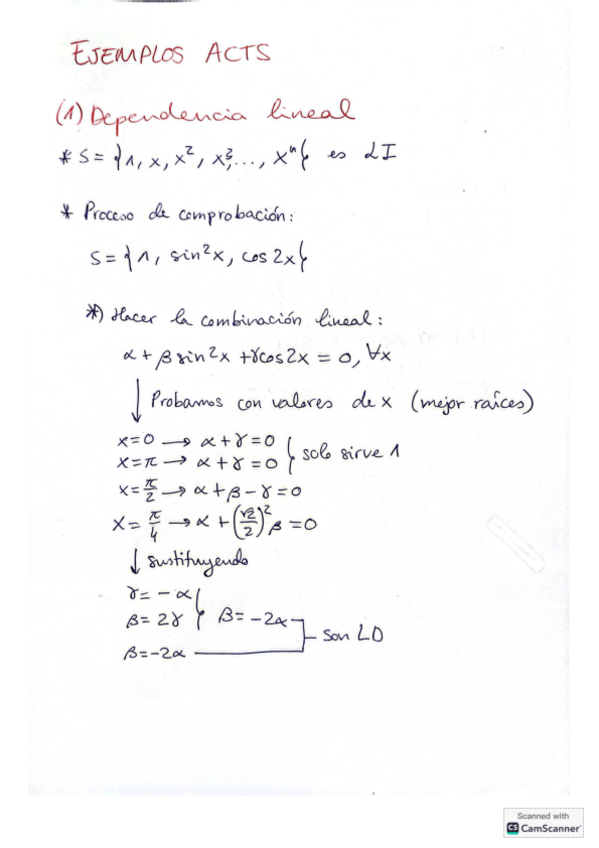 EJEMPLOS ACTS
(1) Dependencia lineal
* S = {1, x, x², x³, ..., xⁿ} es LI
* Proceso de comprobación:
S = {1, sin²x, cos2x}
*) Hacer la combinación lineal:
α + β sin²x + γcos2x = 0, ∀x
↓ Probamos con valores de x (mejor raíces)
x=0 → α + γ = 0
x=π → α + γ = 0 } solo sirve 1
x=π/2 → α + β − γ = 0
x=π/4 → α + (√2/2)² β = 0
↓ sustituyendo
γ = − α
β = 2γ } β = −2α
β = −2α
son LD
Scanned with
CS CamScanner